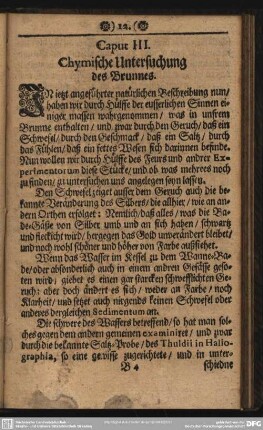 12.
Caput III.
Chymische Untersuchung
des Brunnes.
IN jetzt angeführter natürlichen Beschreibung nun/
haben wir durch Hülffe der eusserlichen Sinnen ei-
niger massen wahrgenommen / was in unsrem
Brunne enthalten / und zwar durch den Geruch / daß ein
Schwefel / durch den Geschmack / daß ein Saltz / durch
das Fühlen / daß ein fettes Wesen sich darinnen befinde.
Nun wollen wir durch Hülffe des Feurs und andrer Ex-
perimentorum diese Stücke / und ob was mehrers noch
zu finden / zu untersuchen uns angelegen seyn lassen.
Den Schwefel zeiget ausser dem Geruch auch die be-
kannte Veränderung des Silbers / die allhier / wie an an-
dern Orthen erfolget: Nemlich / daß alles / was die Ba-
de-Gäste von Silber umb und an sich haben / schwartz
und fleckicht wird / hergegen das Gold unverändert bleibet /
und noch wohl schöner und höher von Farbe außsiehet.
Wenn das Wasser im Kessel zu dem Wanne-Ba-
de / oder absonderlich auch in einem andren Gefässe gesot-
ten wird; giebet es einen gar starcken schwefflichten Ge-
ruch: aber doch ändert es sich / weder an Farbe / noch
Klarheit / und setzet auch nirgends keinen Schwefel oder
anderes dergleichen Sedimentum an.
Die schwere des Wassers betreffend / so hat man sol-
ches gegen dem andern gemeinen examiniret / und zwar
durch die bekannte Saltz-Probe / des Thuldii in Halio-
graphia, so eine gewisse zugerichtete / und in unter-
B 4 schiedne